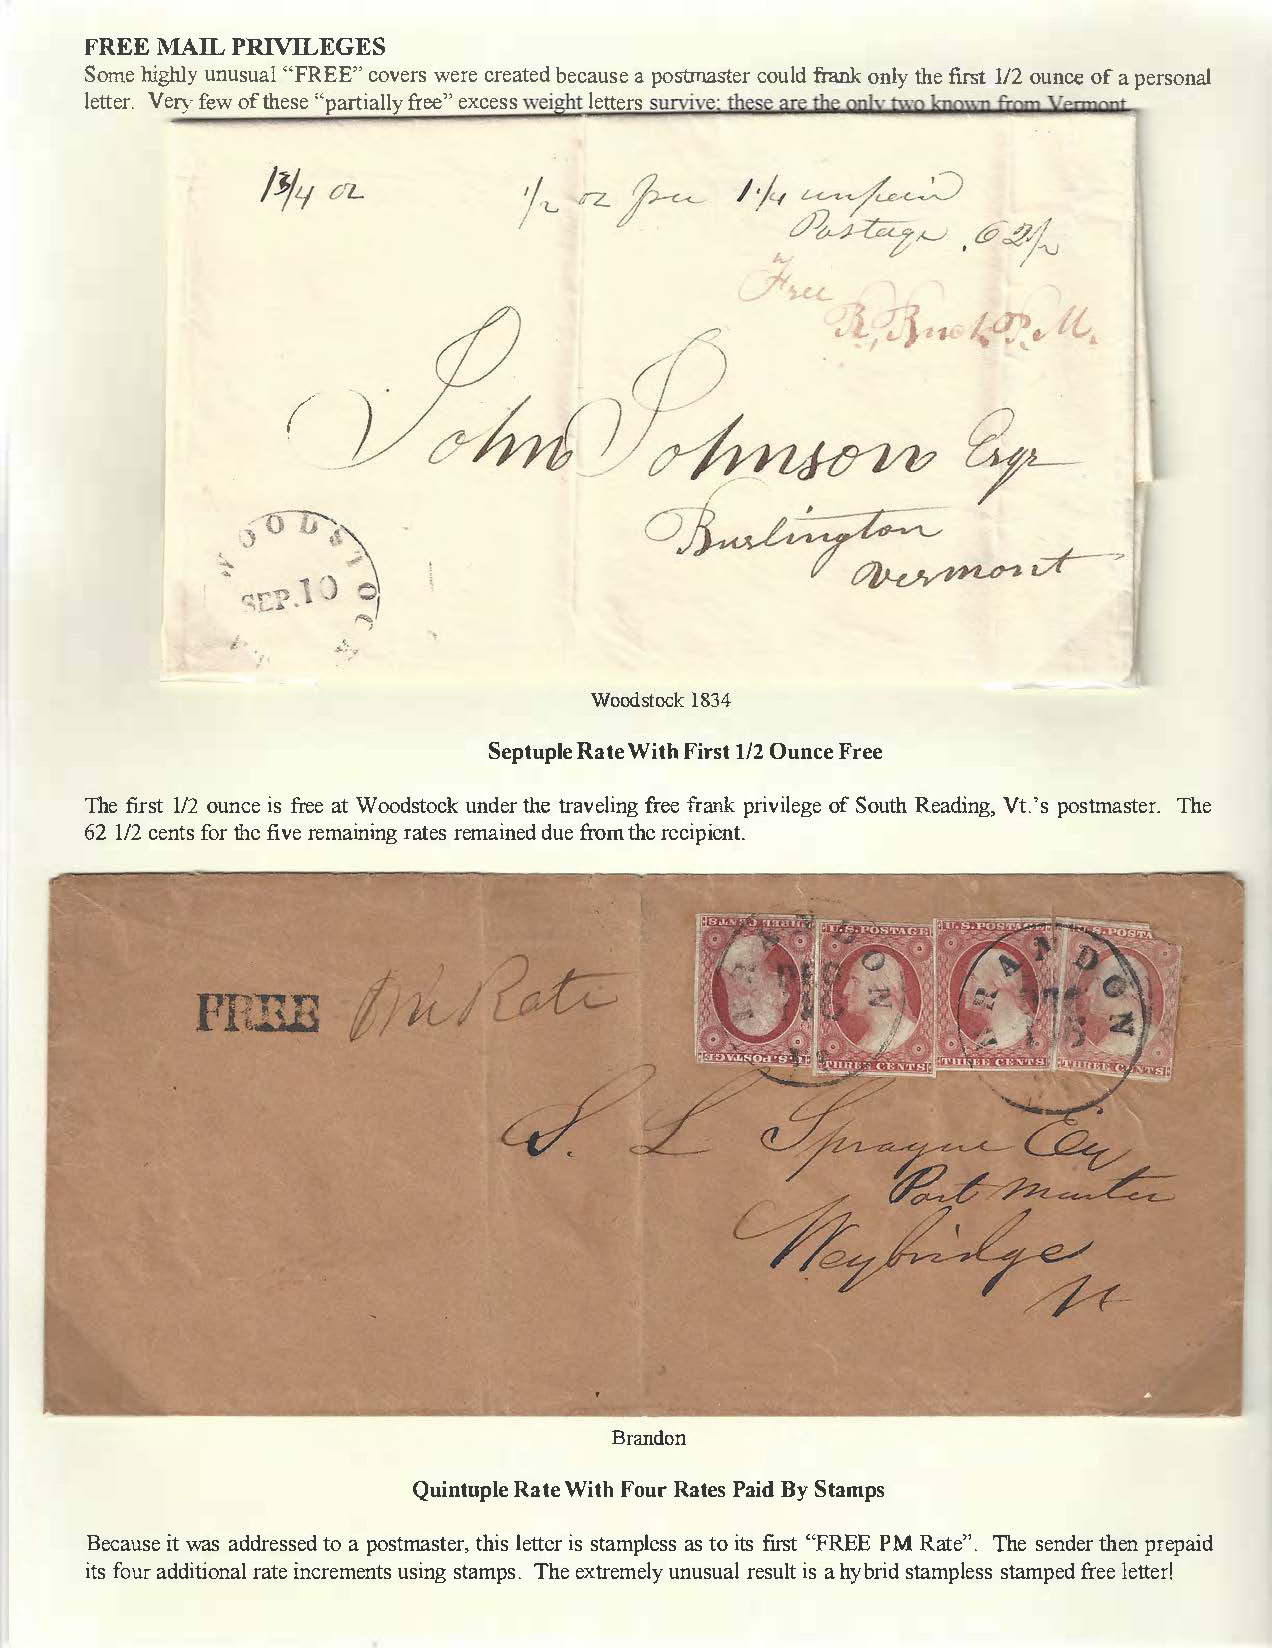 FREE MAIL PRIVILEGES
Some highly unusual “FREE” covers were created because a postmaster could frank only the first 1/2 ounce of a personal
letter. Very few of these “partially free” excess weight letters survive; these are the only two known from Vermont
1 3/4 oz 1/2 oz free 1 1/4 unpaid
Postage .62 1/2
Free
R. Buck P. M.
John Johnson Esqr
Burlington
Vermont
WOODSTOCK
SEP. 10
Woodstock 1834
Septuple Rate With First 1/2 Ounce Free
The first 1/2 ounce is free at Woodstock under the traveling free frank privilege of South Reading, Vt.’s postmaster. The
62 1/2 cents for the five remaining rates remained due from the recipient.
THREE CENTS U.S. POSTAGE U.S. POSTAGE U.S. POSTA
BRANDON BRANDON
DEC
FREE PM Rate
U.S. POSTAGE THREE CENTS THREE CENTS THREE CENTS
S. L Sprague Esq
Post Master
Weybridge
Vt
Brandon
Quintuple Rate With Four Rates Paid By Stamps
Because it was addressed to a postmaster, this letter is stampless as to its first “FREE PM Rate”. The sender then prepaid
its four additional rate increments using stamps. The extremely unusual result is a hybrid stampless stamped free letter!